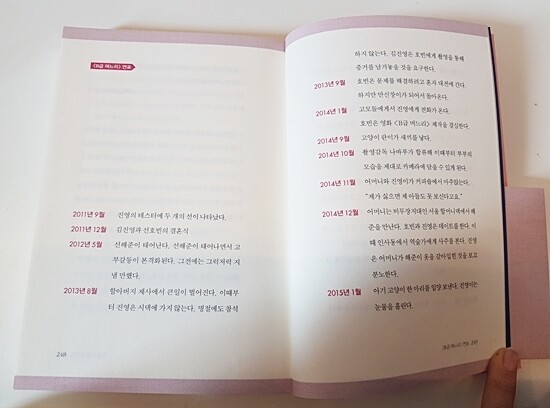 〈B급 며느리〉 연표
2011년 9월 진영의 테스터에 두 개의 선이 나타났다.
2011년 12월 김진영과 선호빈의 결혼식
2012년 5월 선해준이 태어난다. 선해준이 태어나면서 고
부갈등이 본격화된다. 그전에는 그럭저럭 지
낼 만했다.
2013년 8월 할아버지 제사에서 큰일이 벌어진다. 이때부
터 진영은 시댁에 가지 않는다. 명절에도 참석
248
하지 않는다. 김진영은 호빈에게 촬영을 통해
증거를 남겨놓을 것을 요구한다.
2013년 9월 호빈은 문제를 해결하려고 혼자 대전에 간다.
하지만 만신창이가 되어서 돌아온다.
2014년 1월 고모들에게서 진영에게 전화가 온다.
호빈은 영화 〈B급 며느리〉 제작을 결심한다.
2014년 9월 고양이 란이가 새끼를 낳다.
2014년 10월 촬영감독 나바루가 합류해 이때부터 부부의
모습을 제대로 카메라에 담을 수 있게 된다.
2014년 11월 어머니와 진영이가 커피숍에서 마주앉는다.
“제가 싫으면 제 아들도 못 보신다고요.”
2014년 12월 어머니는 비무장지대인 서울 할머니댁에서 해
준을 만난다. 호빈과 진영은 데이트를 한다. 이
때 인사동에서 역술가에게 사주를 본다. 진영
은 어머니가 해준이 옷을 갈아입힌 것을 보고
분노한다.
2015년 1월 아기 고양이 한 마리를 입양 보낸다. 진영이는
눈물을 흘린다.
〈B급 며느리〉 연표 249